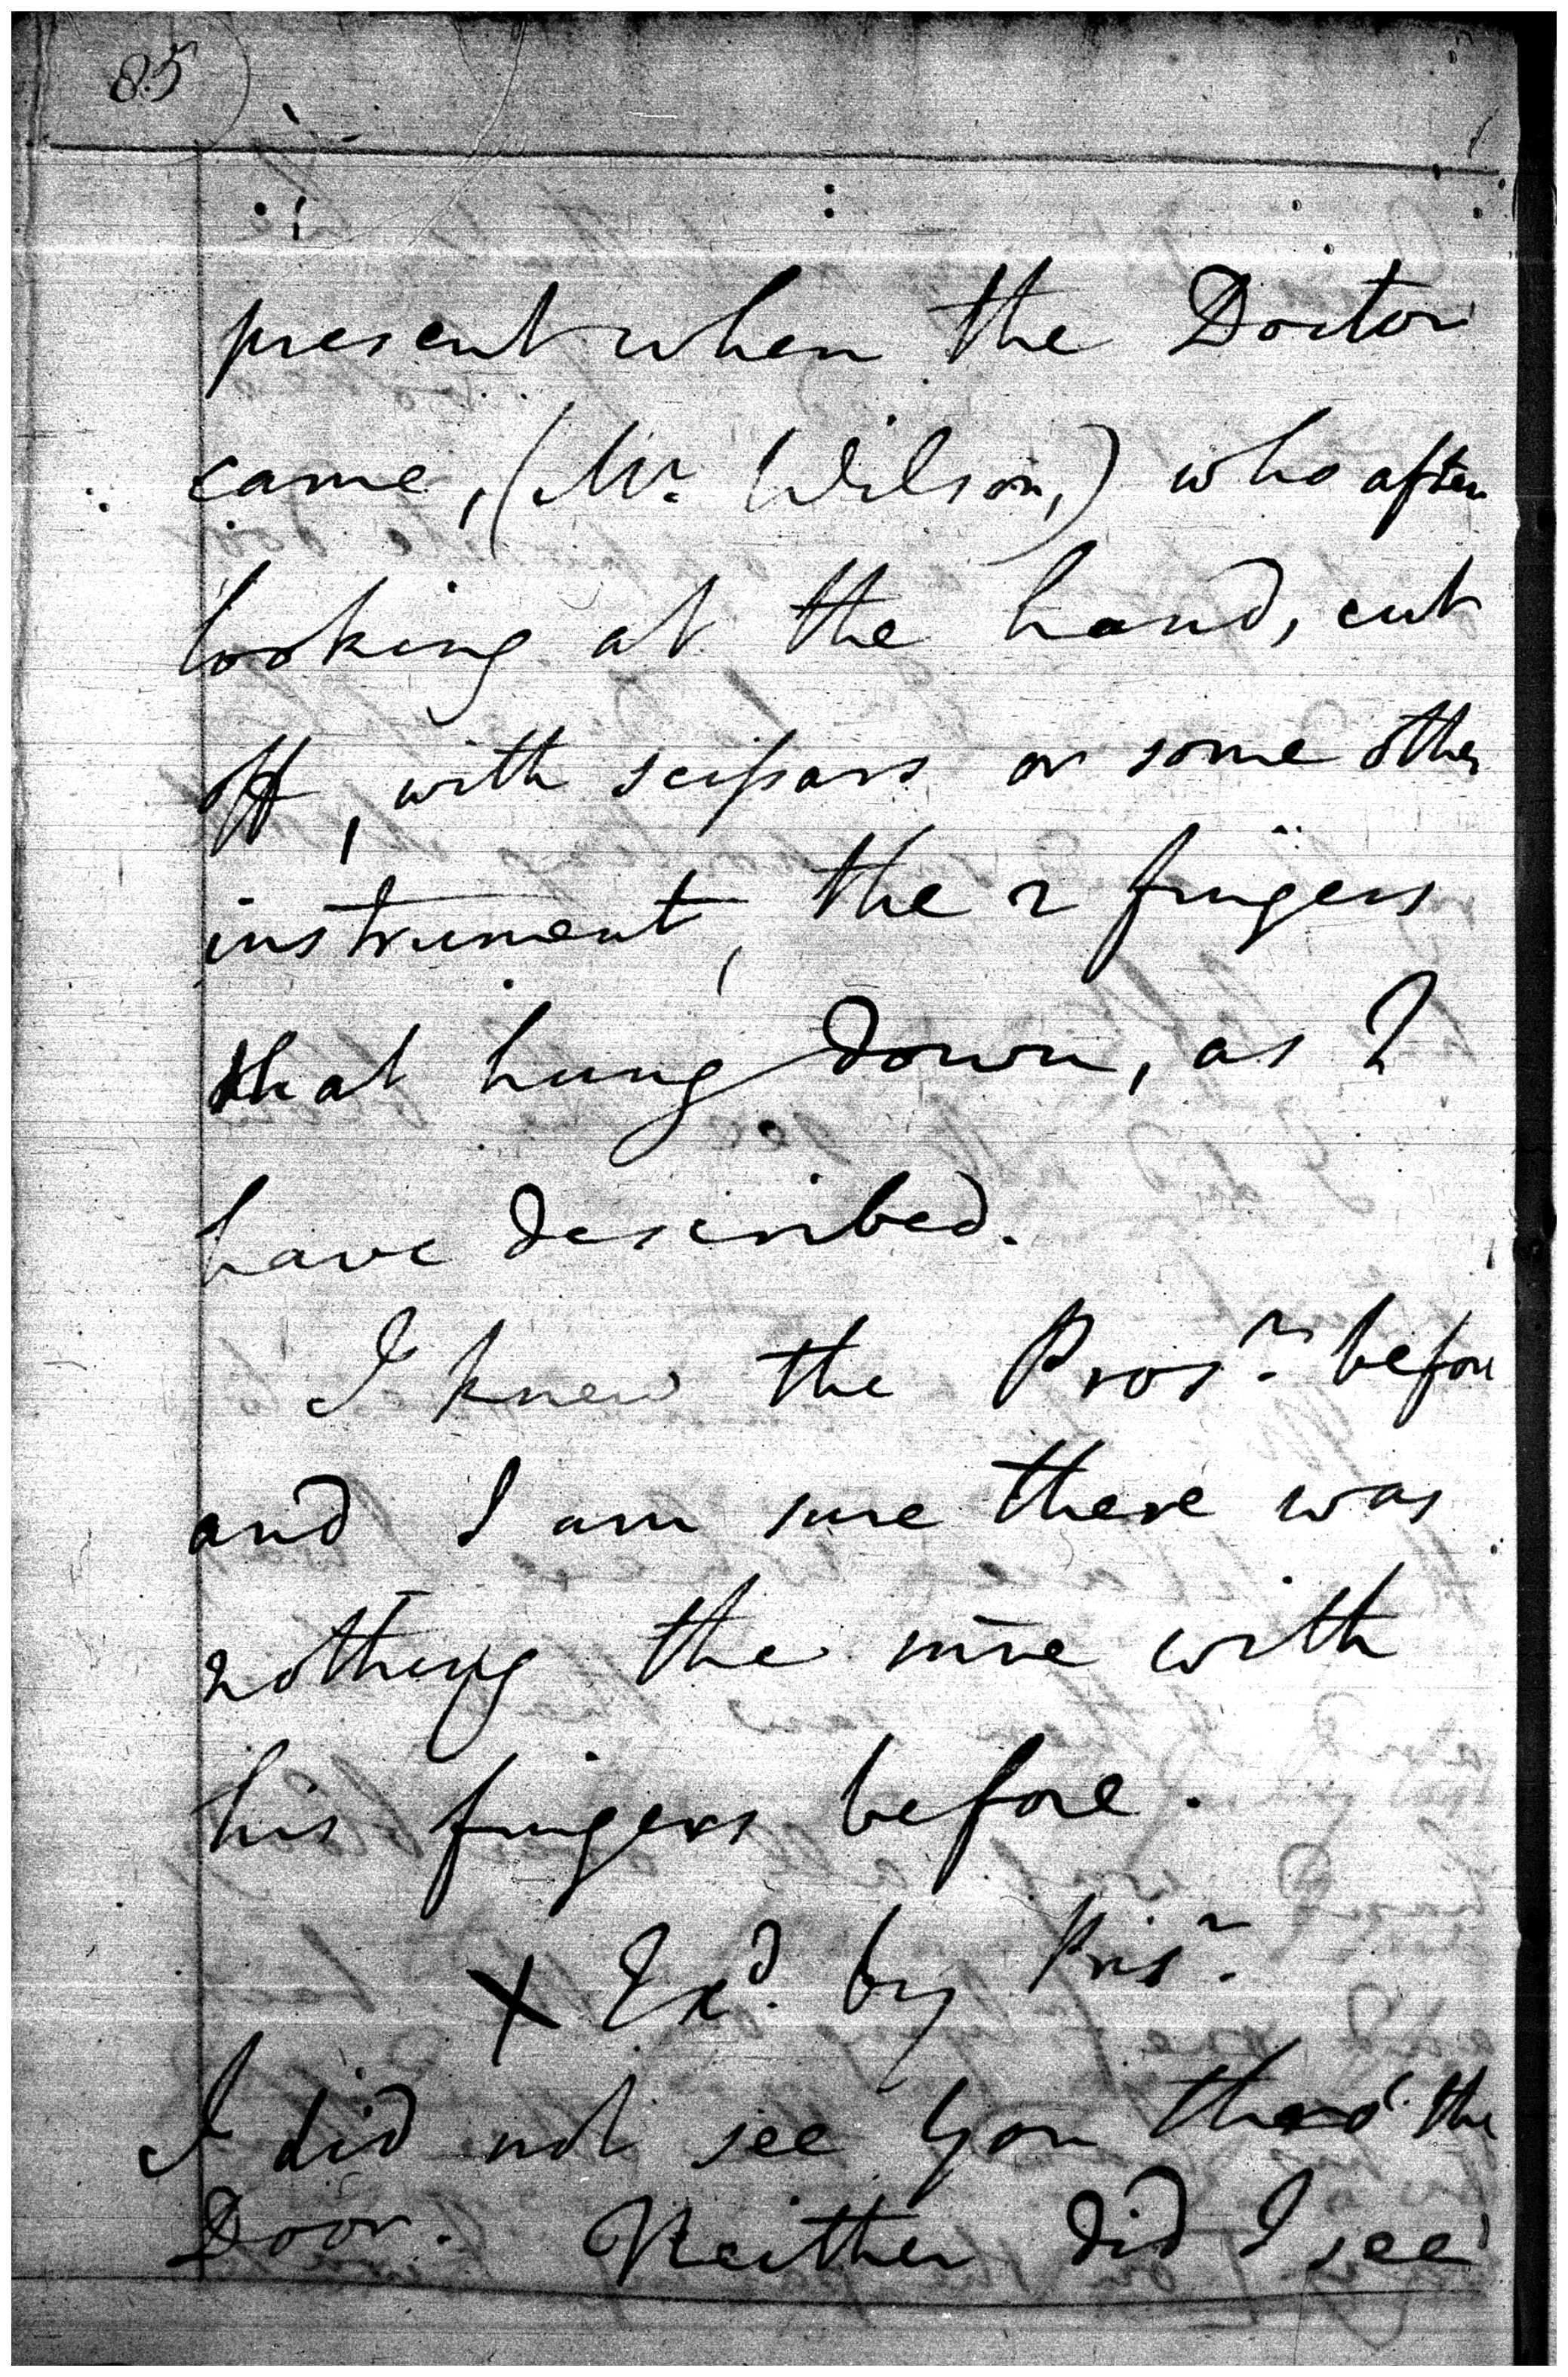 85
present when the Doctor
came, (Mr. Wilson,) who after
looking at the hand, cut
off, with scissars or some other
instrument, the 2 fingers
that hung down, as I
have described.
I knew the Prosr. before
and I am sure there was
nothing the with
his fingers before.
X Exd. by Prisr.
I did not see you the
Door. Neither did I see